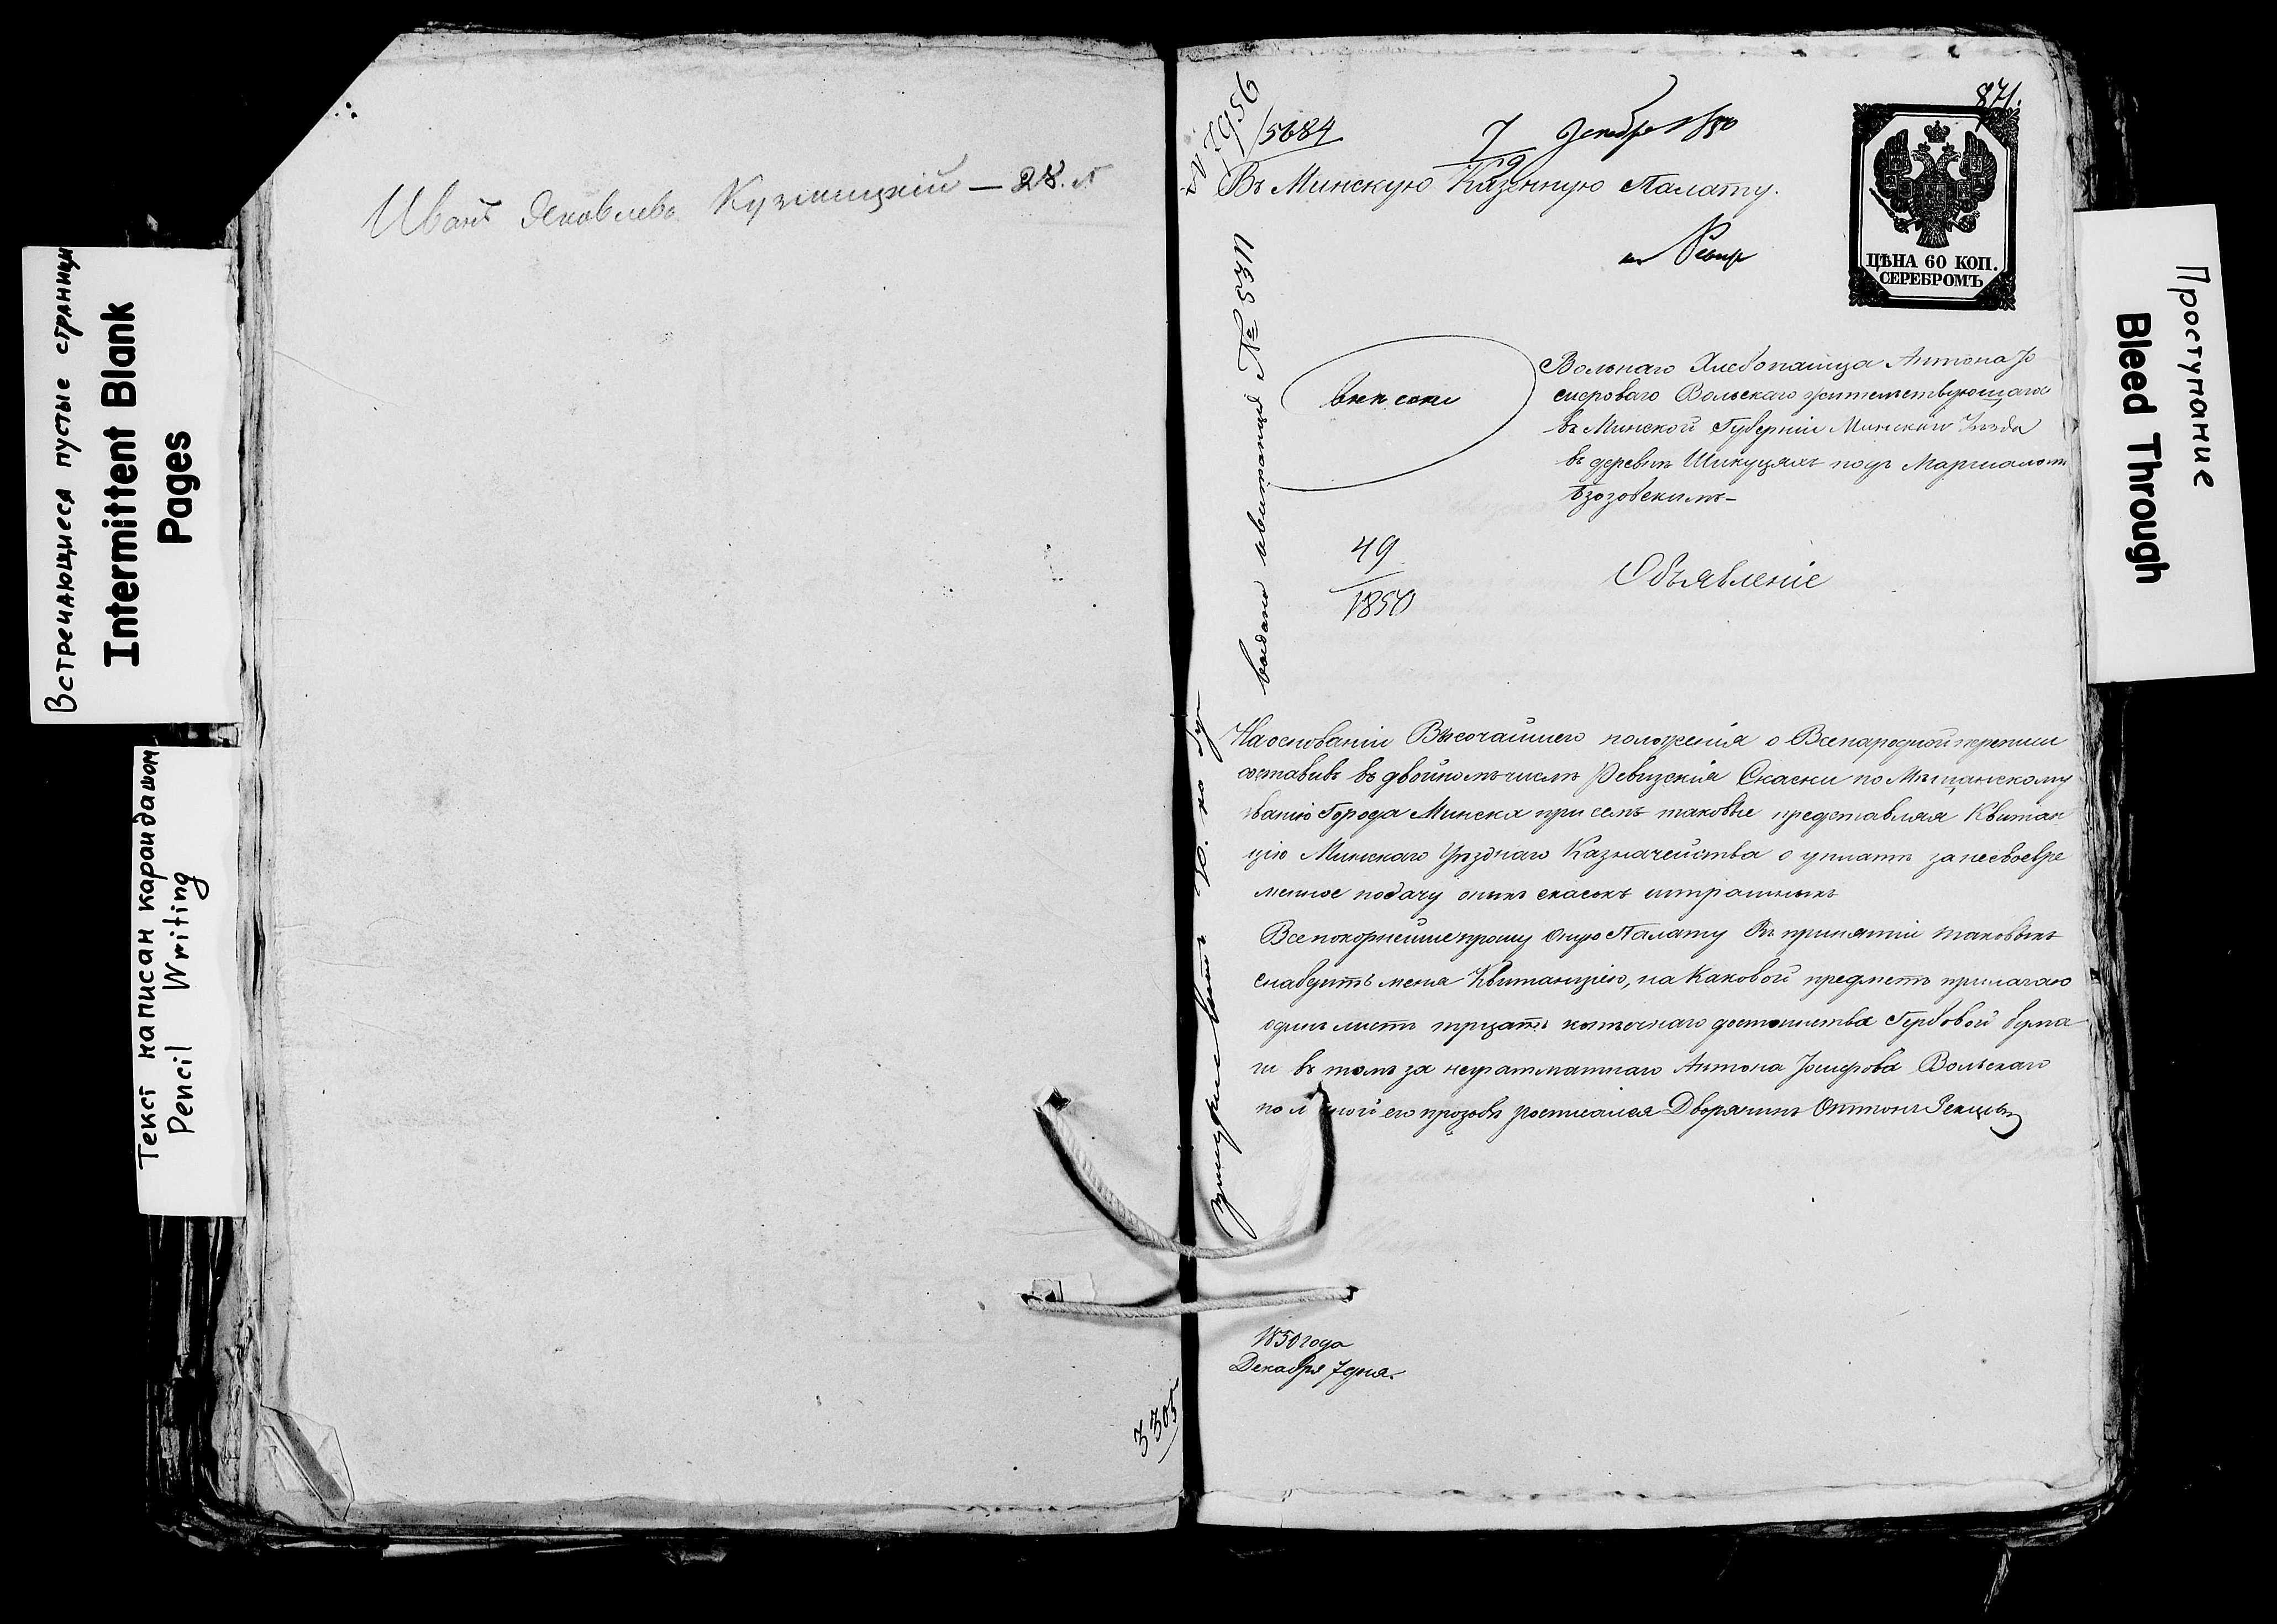 Встречающиеся пустые страницы
Intermittent Blank
Pages
Текст написан карандашом
Pencil Writing
Иванъ Яковлевъ Кузмицкій — 28. л
3305
871.
№ 7956
/5684
7 Декабр 1850
Въ Минскую Казенную Палату.
ЦѢНА 60 КОП.
СЕРЕБРОМЪ
Вольнаго Хлебопашца Антона Ю
сиѳоваго Вольскаго жительствующаго
въ Минской Губерніи Минскаго Уѣзда
въ деревнѣ Шикуцяхъ подъ
49
1850
Объявленіе
выдана квитанция № 5311
На основаніи Высочайшего положенія о Всенародной переписи
составивъ въ двойномъ числѣ Ревизскія Скаски по Мѣщанскому
званію Города Минска при семъ таковые представляя Квитан
цію Минскаго Уѣзднаго Казначейства о уплатѣ за несвоевре
менное подачу оныхъ скасокъ штрафныхъ
Всепокорнейше прошу оную Палату Въ принятіи таковыхъ
снабдить меня Квитанціею, на Каковой предметъ прилагаю
одинъ листъ трцать копѣечнаго достоинства Гербовой бума
ги въ томъ за неграматнаго Антона Юсиѳова Вольскаго
по л ной его прозбѣ росписался Дворянинъ Оттонъ
1850 года
Декабря 7 дня.
Проступание
Bleed Through